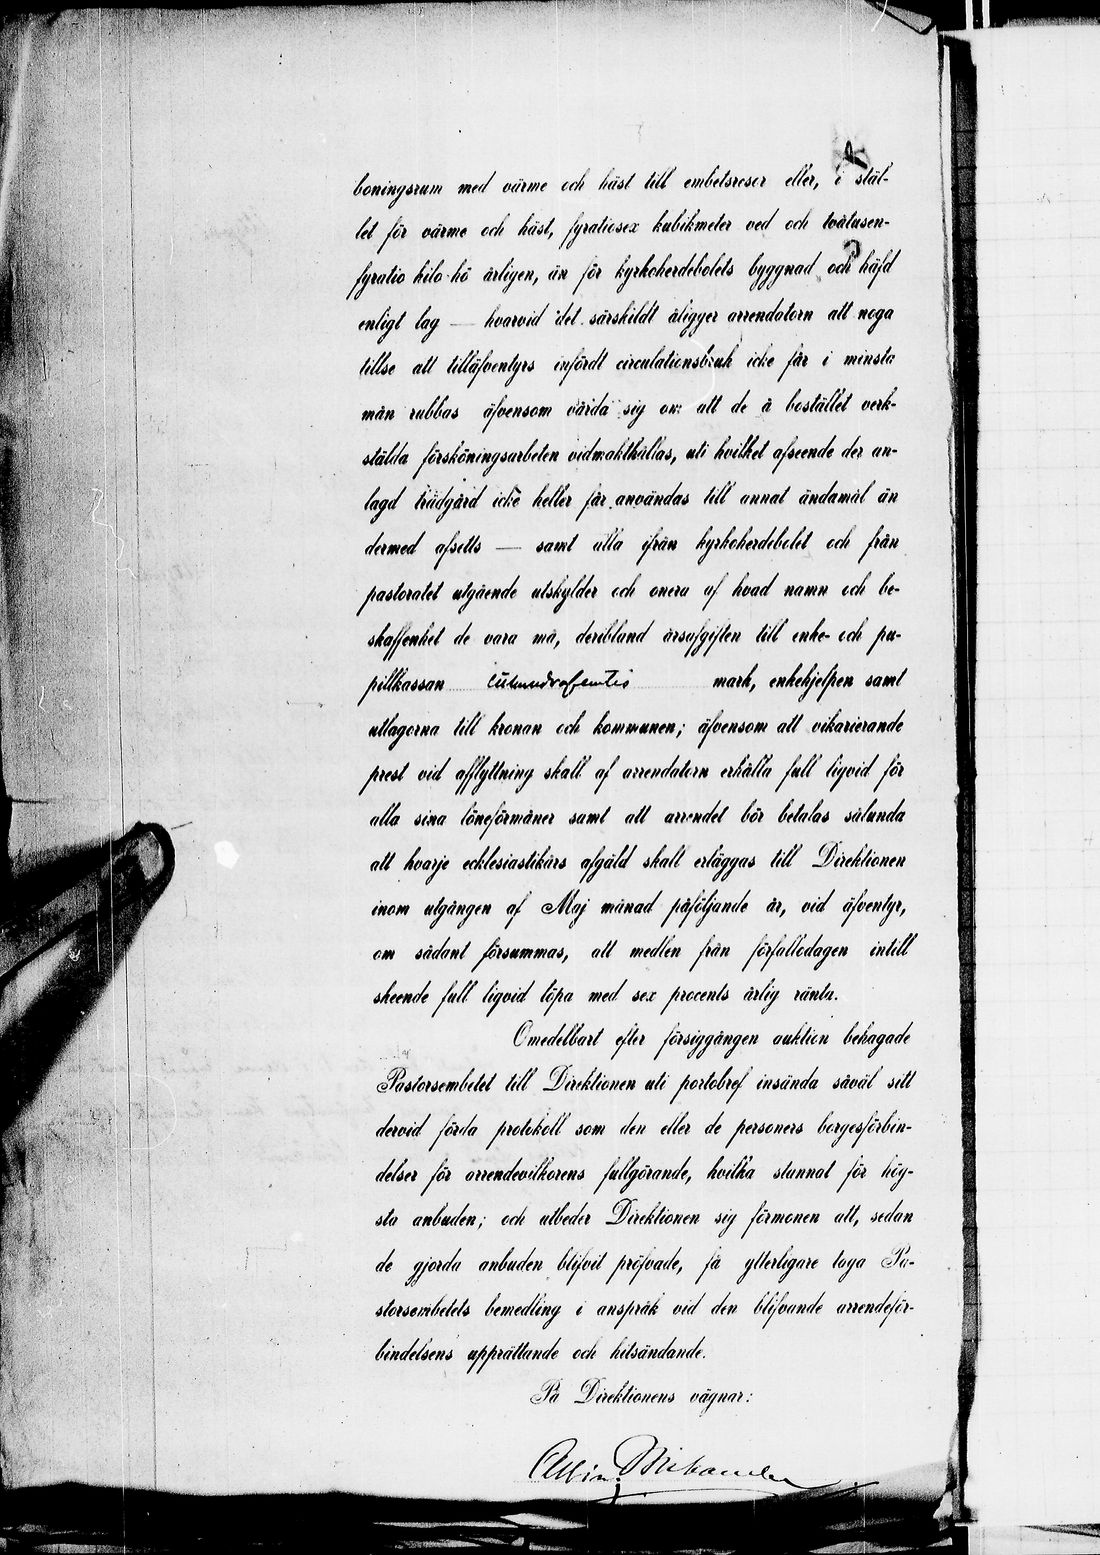 boningsrum med värme och häst till embetsresor eller, i stäl-
let för värme och häst, fyratiosex kubikmeter ved och tvåtusen-
fyratio kilo hö årligen, än för kyrkoherdebolets byggnad och häfd
enligt lag — hvarvid det särskildt åligger arrendatorn att noga
tillse att tilläfventyrs infördt circulationsbruk icke får i minsta
mån rubbas äfvensom vårda sig om att de å bostället verk-
stälda försköningsarbeten vidmakthållas, uti hvilket afseende der an-
lagd trädgård icke heller får användas till annat ändamål än
dermed afsetts — samt alla ifrån kyrkoherdebolet och från
pastoratet utgående utskylder och onera af hvad namn och be-
skaffenhet de vara må, deribland årsafgiften till enke- och pu-
pillkassan mark, enkehjelpen samt
utlagorna till kronan och kommunen; äfvensom att vikarierande
prest vid afflyttning skall af arrendatorn erhålla full liqvid för
alla sina löneförmåner samt att arrendet bör betalas sålunda
att hvarje ecklesiastikårs afgäld skall erläggas till Direktionen
inom utgången af Maj månad påföljande år, vid äfventyr,
om sådant försummas, att medlen från förfallodagen intill
skeende full liqvid löpa med sex procents årlig ränta.
Omedelbart efter försiggången auktion behagade
Pastorsembetet till Direktionen uti portobref insända såväl sitt
dervid förda protokoll som den eller de personers borgesförbin-
delser för arrendevilkorens fullgörande, hvilka stannat för hög-
sta anbuden; och utbeder Direktionen sig förmonen att, sedan
de gjorda anbuden blifvit pröfvade, få ytterligare taga Pa-
storsembetets bemedling i anspråk vid den blifvande arrendeför-
bindelsens upprättande och hitsändande.
På Direktionens vägnar: